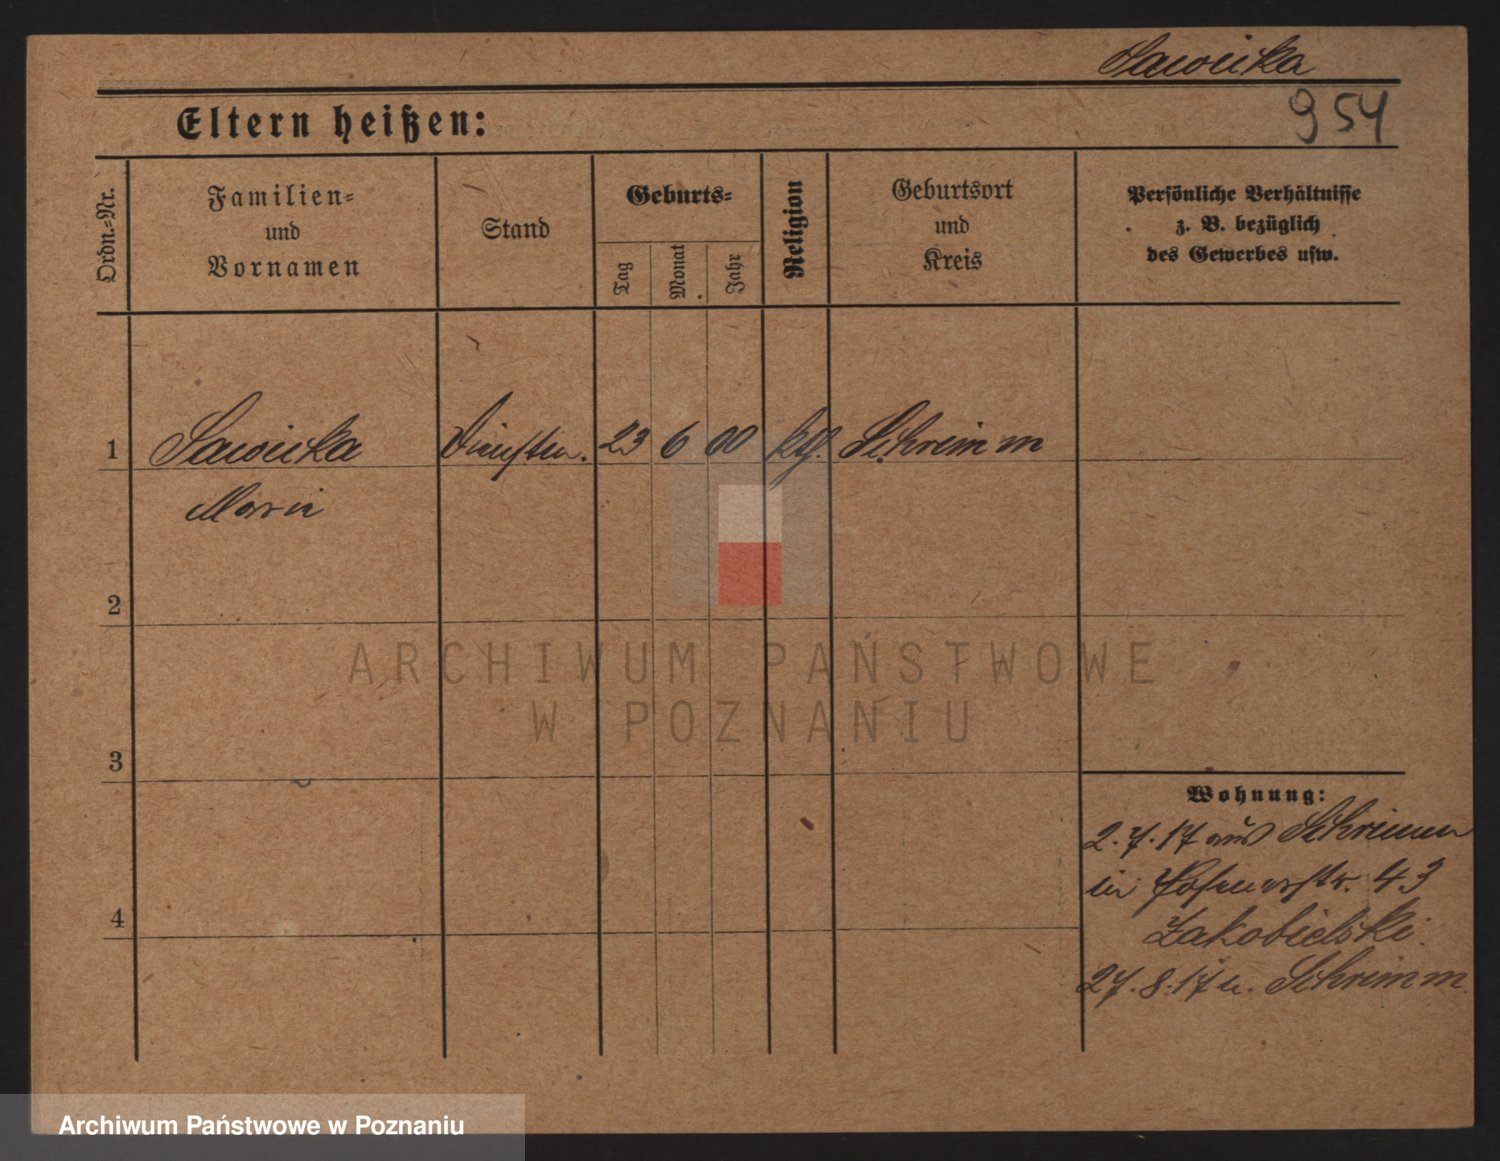 Sawicka
954
Eltern heißen:
Ordn.-Nr.
Familien-
und
Vornamen
Stand
Geburts-
Tag
Monat
Jahr
Religion
Geburtsort
und
Kreis
Persönliche Verhältnisse
z. B. bezüglich
des Gewerbes usw.
1 Sawicka 23 6 00 kth. Schrimm
Marie
2
3
4
Wohnung:
2.7.17 aus Schrimm
in Posenerstr. 43
Jakobielski
27.8.17 n. Schrimm
ARCHIWUM PAŃSTWOWE
W POZNANIU
Archiwum Państwowe w Poznaniu